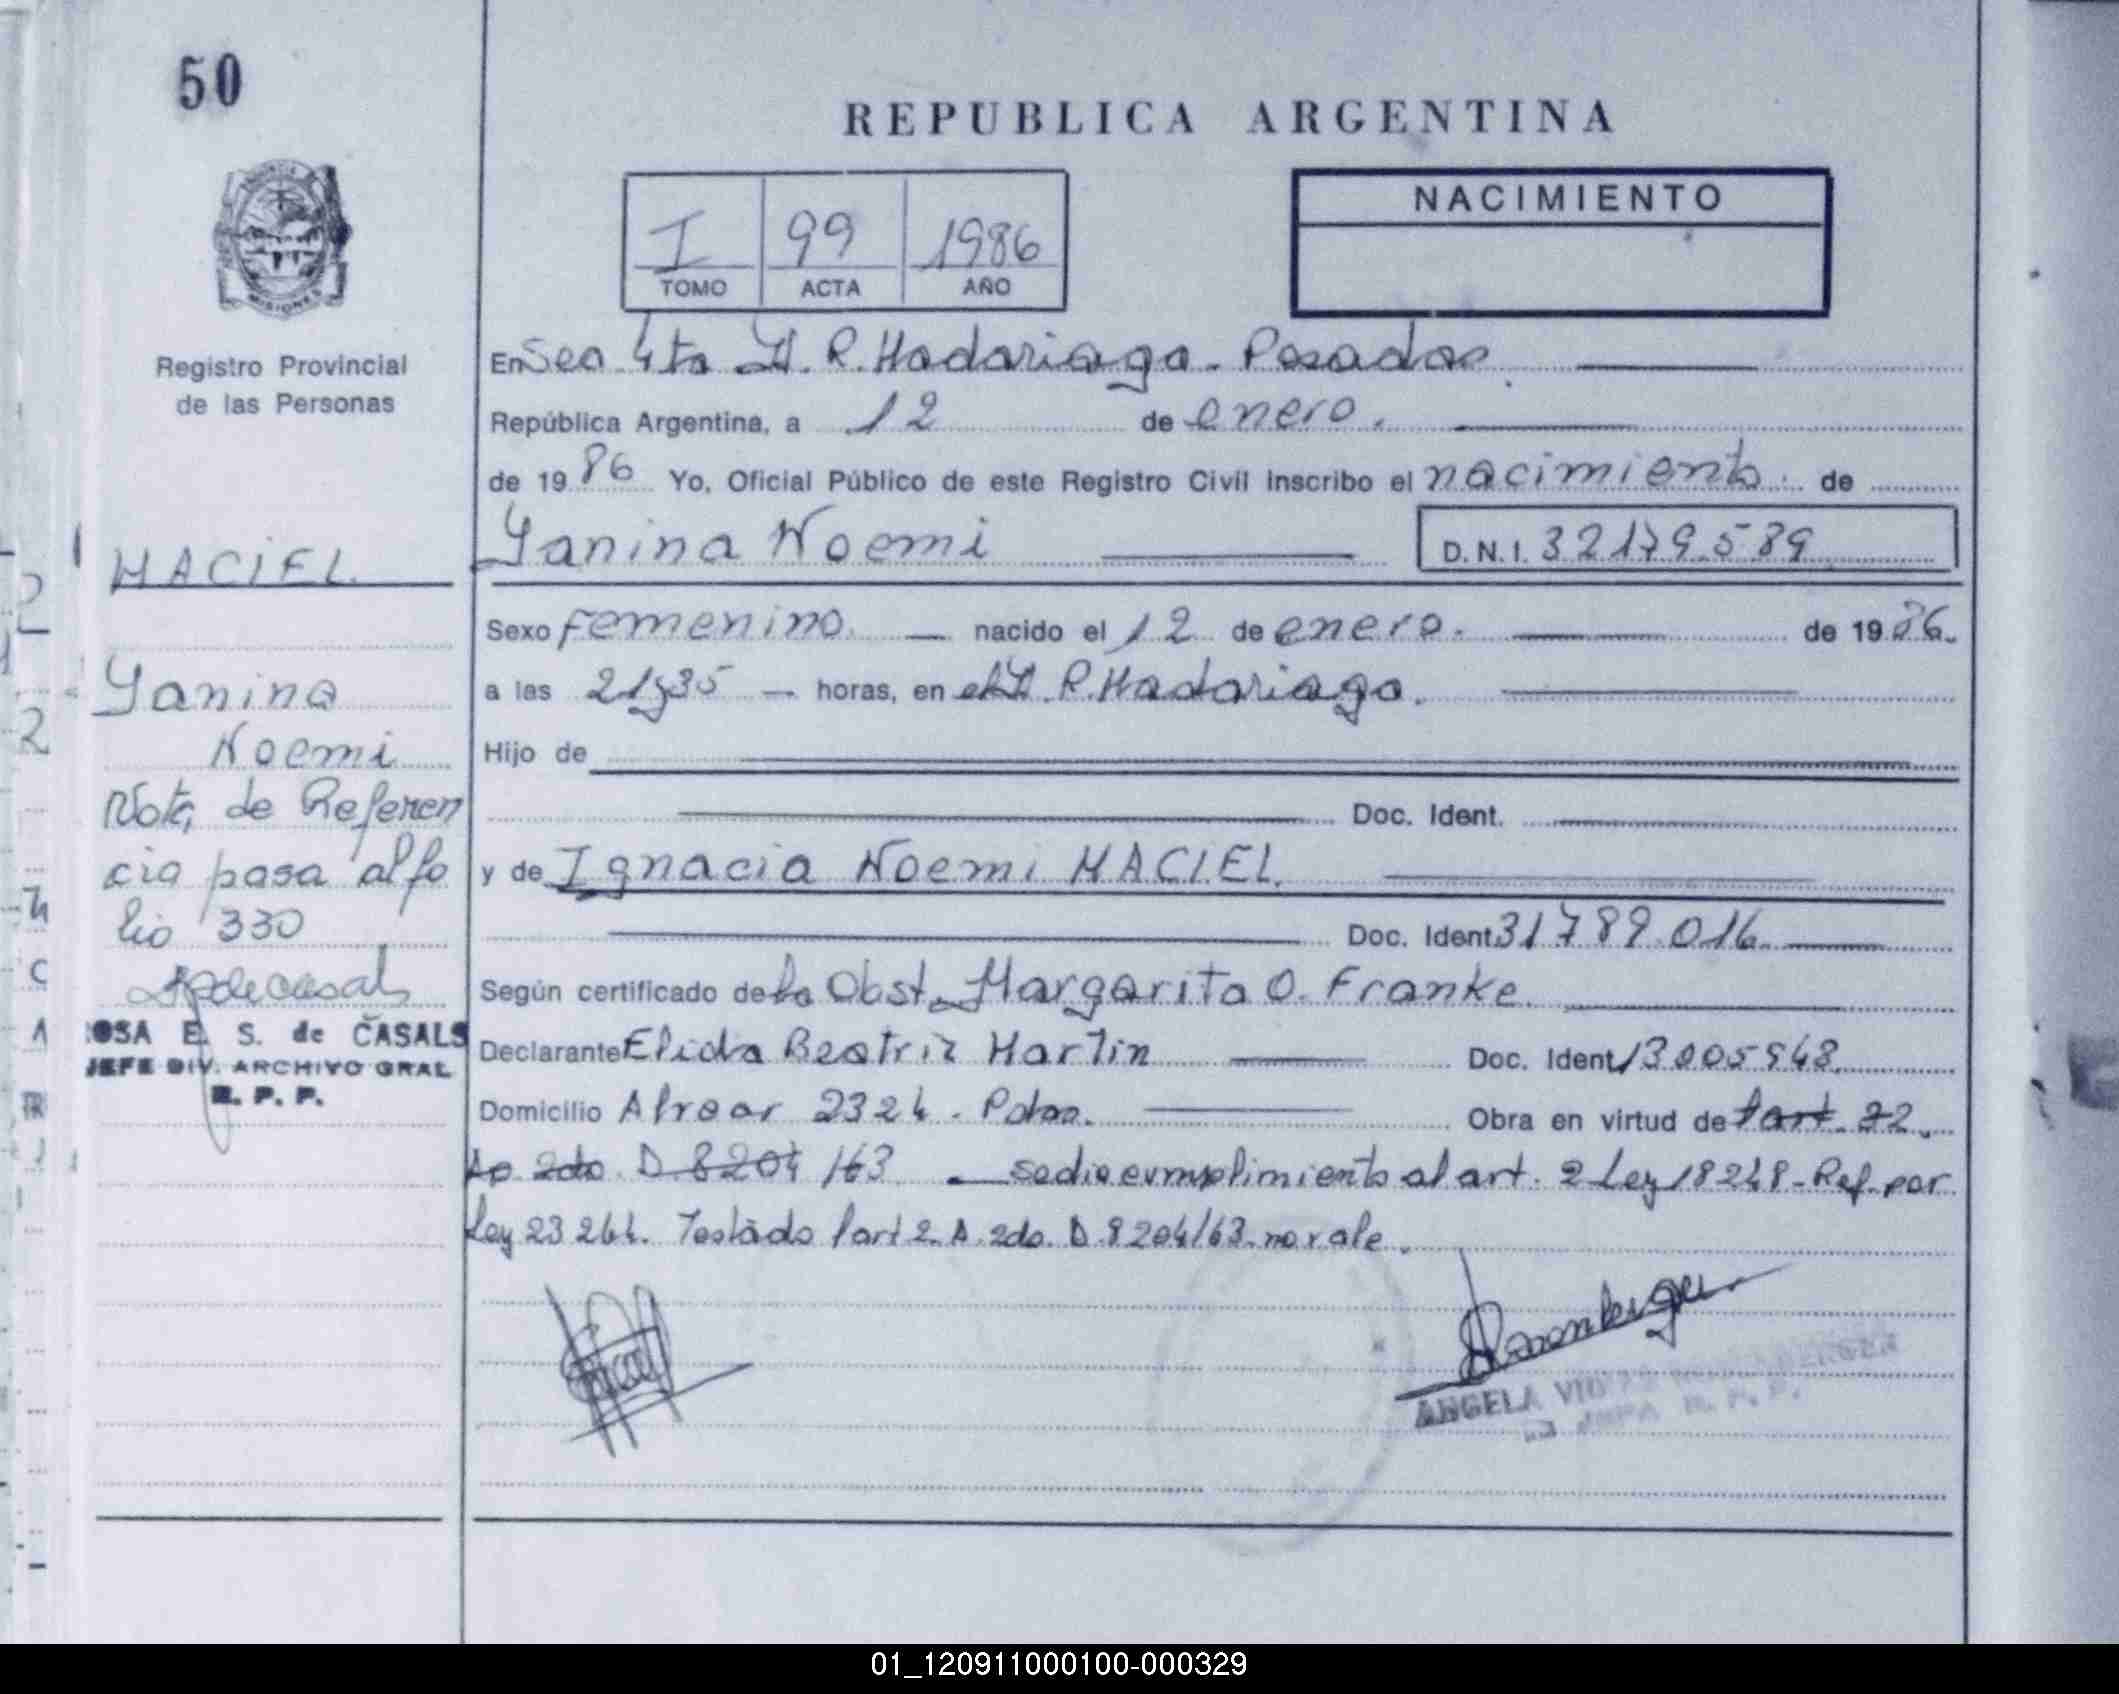 50
REPUBLICA ARGENTINA
I 99 1986
TOMO ACTA AÑO
NACIMIENTO
MISIONES
Registro Provincial
de las Personas
En Sec 4ta H. R. Madariaga. Posadas
República Argentina, a 12 de enero.
de 1986 Yo, Oficial Público de este Registro Civil inscribo el nacimiento. de
Yanina Noemi D.N.I. 32179.589
MACIEL
Yanina
Noemi
Nota de Referen
cia pasa al fo
lio 330
ROSA E. S. de CASALS
JEFE DIV. ARCHIVO GRAL
R. P. P.
Sexo Femenino. nacido el 12 de enero. de 1986.
a las 21y35 horas, en el H. R. Madariaga.
Hijo de
Doc. Ident.
y de Ignacia Noemi MACIEL.
Doc. Ident 31789.016.
Según certificado de la Obst. Margarita O. Franke.
Declarante Elida Beatriz Martin Doc. Ident 13005948.
Domicilio Alvear 2324. Pdas. Obra en virtud de l'art. 22.
Ap 2do D. 8204/63 se dio cumplimiento al art. 2 Ley 18248-Ref. por
Ley 23264. Testado l'art 2. A. 2do. D. 8204/63. no vale.
ANGELA
R. P. P.
01_120911000100-000329